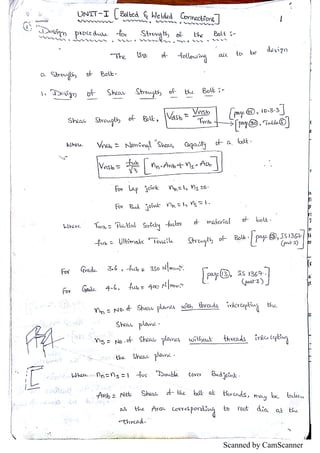 UNIT-I [Bolted & Welded Connections]
1
Design procedure for Strength of the Bolt :-
The list of following are to be design
a Strength of Bolt.
1. Design of Shear Strength of the Bolt :-
Shear Strength of Bolt, Vdsb = Vnsb / γmb
[page 75, 10.3.3]
Where Vnsb = Nominal Shear Capacity of a bolt.
Vnsb = fub / √3 [nn. Anb + ns. Asb]
For Lap joint nn=1, ns=0.
For But joint nn=1, ns=1.
Where γmb = Partial Safety factor of material of bolt.
fub = Ultimate Tensile Strength of Bolt. [page 13, IS 1367 (part-3)]
For Grade 3.6, fub = 330 N/mm².
For Grade 4.6, fub = 400 N/mm²
[page 13, IS 1367. (part-3)]
nn = No. of Shear planes with threads intercepting the
Shear plane.
ns = No. of Shear planes without threads intercepting
the Shear plane.
When nn=ns=1 for Double cover Buttjoint.
Anb = Nett Shear of the bolt at threads, may be taken
as the Area corresponding to root dia at the
thread.
Scanned by CamScanner